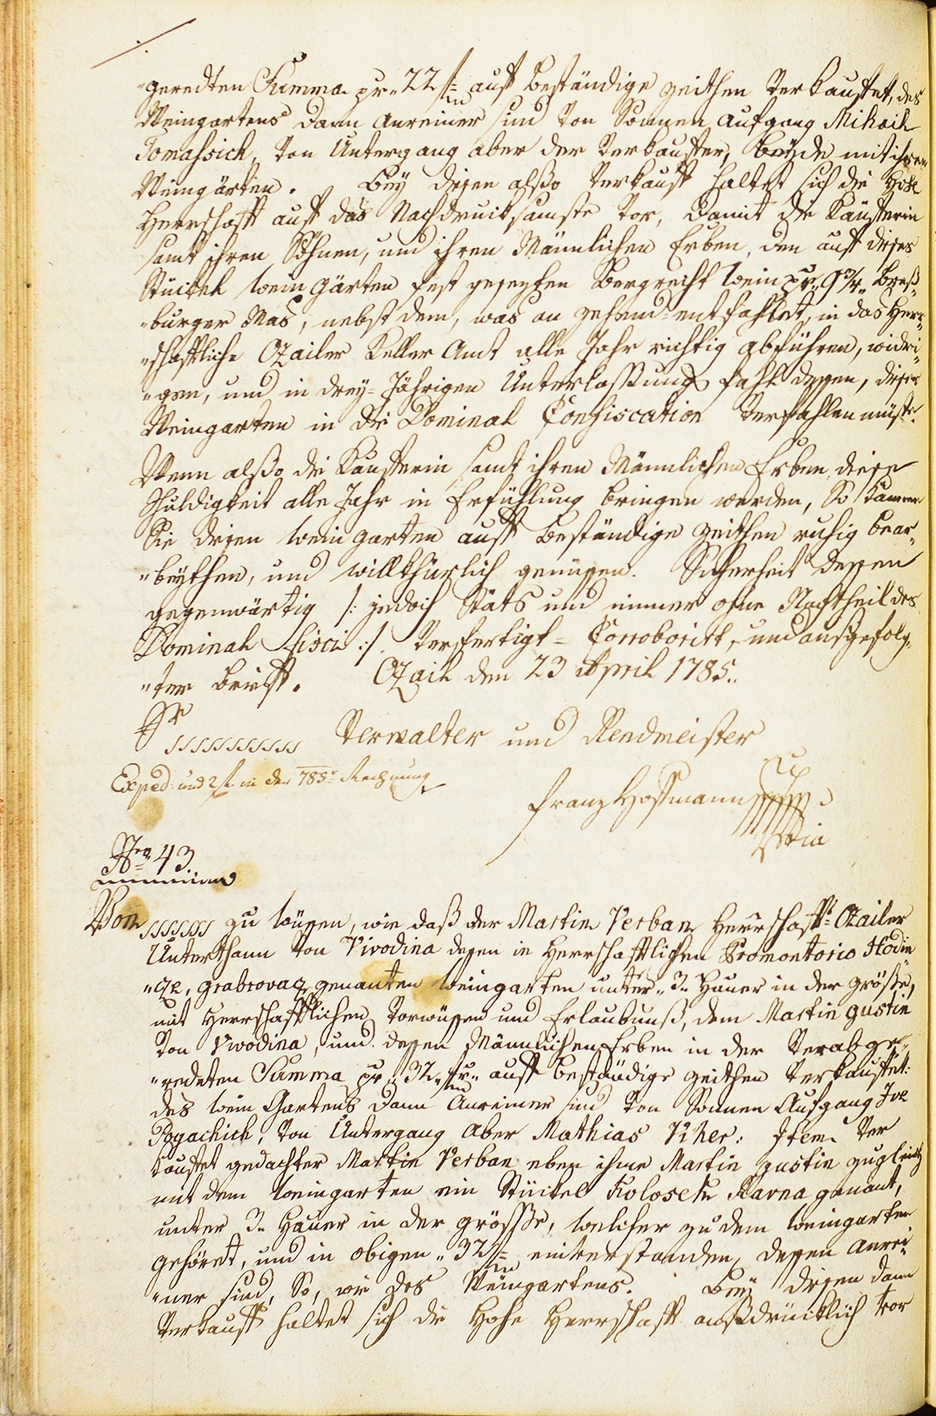 "geredten Summa pr 22 f auff beständige zeithen verkauffet, des
Weingartens dann Anreiner sind von Sonnen Aufgang Mihaik
Tomassich, von Untergang aber der Verkauffer, beyde mit ihren
Weingärten. Bey diesen alßo Verkauff haltet sich die Hohe
Herrschafft auff das Nachdrucksamste vor, damit die Käufferin
samt ihren Söhnen, und ihren Männlichen Erben, den auff dieses
Stückel Wein Gärten fest gesezten Bergrecht Wein pr Preß"
"burger Mas, nebst dem, was an zehend entfahlet, in das Herr"
"schafftliche Ozailer Keller Amt alle Jahr richtig abführen, widri"
"gen, und in drey-Jährigen Unterlassungs fahl dessen, dieser
Weingarten in die Dominal Confiscation verfahlen müste.
Wenn alßo die Käufferin samt ihren Männlichen Erben, diese
Schuldigkeit alle Jahr in Erfühlung bringen werden, So können
Sie diesen Weingarten auff beständige zeithen ruhig bear"
"beythen, und willkührlich genüssen. Sicherheit dessen
gegenwärtig /: jedoch stäts und immer ohne Nachtheil des
Dominal Fisci :/ Verfertigt - Corroborirt, und außgefolg"
"ter brieff. Ozail den 23 April 1785.
Verwalter und Rendmeister
Exped: und 2 f in der 785 Rechnung
Franz Hoffmann
Nro 43.
Von zu wüssen, wie daß der Martin Verban Herrschafft Ozailer
Unterthann von Vivodina dessen in Herrschafftlichen Promontorio Hodin"
"ze, grabrovaz genanten Weingarten unter 3 Hauer in der größe,
mit Herrschafftlichen Vorwüssen und Erlaubnuß, dem Martin gustin
von Vivodina, und dessen Männlichen Erben in der Verabge"
"redeten Summa pr 32 f auff beständige zeithen verkauffet:
des Wein Gartens dann Anreiner sind von Sonnen Aufgang Ive
Pogachich, von Untergang aber Mathias Viher: Item Ver
kauffet gedachter Martin Verban eben ihme Martin gustin zugleich
mit dem Weingarten ein Stückel Kolosek Ravna genant,
unter 3 Hauer in der grösse, welcher zu dem Weingarten
gehöret, und in obigen 32 f einverstanden, dessen Anrei"
"ner sind, So, wie des Weingartens. Bey diesen dann
Verkauff haltet sich die Hohe Herrschafft ausdrücklich vor